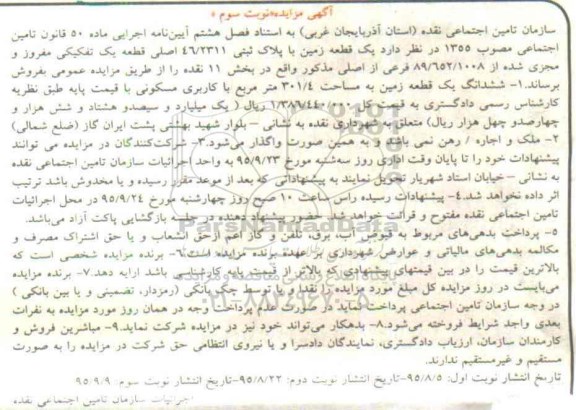 آگهی مزایده «نوبت سوم»
سازمان تامین اجتماعی نقده (استان آذربایجان غربی) به استناد فصل هشتم آیین‌نامه اجرایی ماده ۵۰ قانون تامین
اجتماعی مصوب ۱۳۵۵ در نظر دارد یک قطعه زمین با پلاک ثبتی ۴۶/۲۳۱۱ اصلی قطعه یک تفکیکی مفروز و
مجزی شده از ۸۹/۶۵۲/۱۰۰۸ فرعی از اصلی مذکور واقع در بخش ۱۱ نقده را از طریق مزایده عمومی بفروش
برساند.۱- ششدانگ یک قطعه زمین به مساحت ۳۰۱/۴ متر مربع با کاربری مسکونی با قیمت پایه طبق نظریه
کارشناس رسمی دادگستری به قیمت کل ریال ( یک میلیارد و سیصدو هشتاد و شش هزار و
چهارصدو چهل هزار ریال) متعلق به شهرداری نقده به نشانی – بلوار شهید بهشتی پشت ایران گاز (ضلع شمالی)
۲- ملک و اجاره / رهن نمی باشد و به همین صورت واگذار می‌شود.۳- شرکت‌کنندگان در مزایده می توانند
پیشنهادات خود را تا پایان وقت اداری روز سه‌شنبه مورخ ۹۵/۹/۲۳ به واحد اجرائیات سازمان تامین اجتماعی نقده
به نشانی – خیابان استاد شهریار تحویل نمایند به پیشنهاداتی که بعد از موعد مقرر رسیده و یا مخدوش باشد ترتیب
اثر داده نخواهد شد.۴- پیشنهادات رسیده راس ساعت ۱۰ صبح روز چهارشنبه مورخ ۹۵/۹/۲۴ در محل اجرائیات
تامین اجتماعی نقده مفتوح و قرائت خواهد شد. حضور پیشنهاد دهنده در جلسه بازگشایی پاکت آزاد می‌باشد.
۵- پرداخت بدهی‌های مربوط به قبوض آب، برق، تلفن و گاز اعم از حق انشعاب و یا حق اشتراک مصرف و
مکالمه بدهی‌های مالیاتی و عوارض شهرداری بر عهده برنده مزایده است.۶- برنده مزایده شخصی است که
بالاترین قیمت را در بین قیمتهای پیشنهادی که بالاتر از قیمت پایه کارشناسی باشد ارایه دهد.۷- برنده مزایده
می‌بایست در روز مزایده کل مبلغ مورد مزایده را نقدا و یا توسط چک بانکی (رمزدار، تضمینی و یا بین بانکی )
در وجه سازمان تامین اجتماعی پرداخت نماید در صورت عدم پرداخت وجه در همان روز مورد مزایده به نفرات
بعدی واجد شرایط فروخته می‌شود.۸- بدهکار می‌تواند خود نیز در مزایده شرکت نماید.۹- مباشرین فروش و
کارمندان سازمان، ارزیاب دادگستری، نمایندگان دادسرا و یا نیروی انتظامی حق شرکت در مزایده را به صورت
مستقیم و غیرمستقیم ندارند.
تاریخ انتشار نوبت اول: ۹۵/۸/۵-تاریخ انتشار نوبت دوم: ۹۵/۸/۲۲-تاریخ انتشار نوبت سوم: ۹۵/۹/۹
اجرائیات سازمان تامین اجتماعی نقده
ParsNamadData
۰۲۱-۸۸۳۴۹۶۷۰-۵